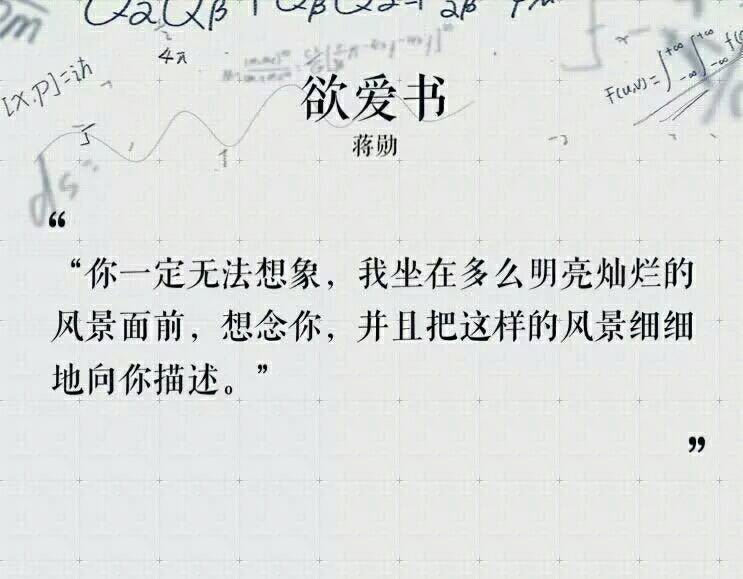 4π
[x,p]=iħ
欲爱书
蒋勋
“
“你一定无法想象，我坐在多么明亮灿烂的
风景面前，想念你，并且把这样的风景细细
地向你描述。”
”